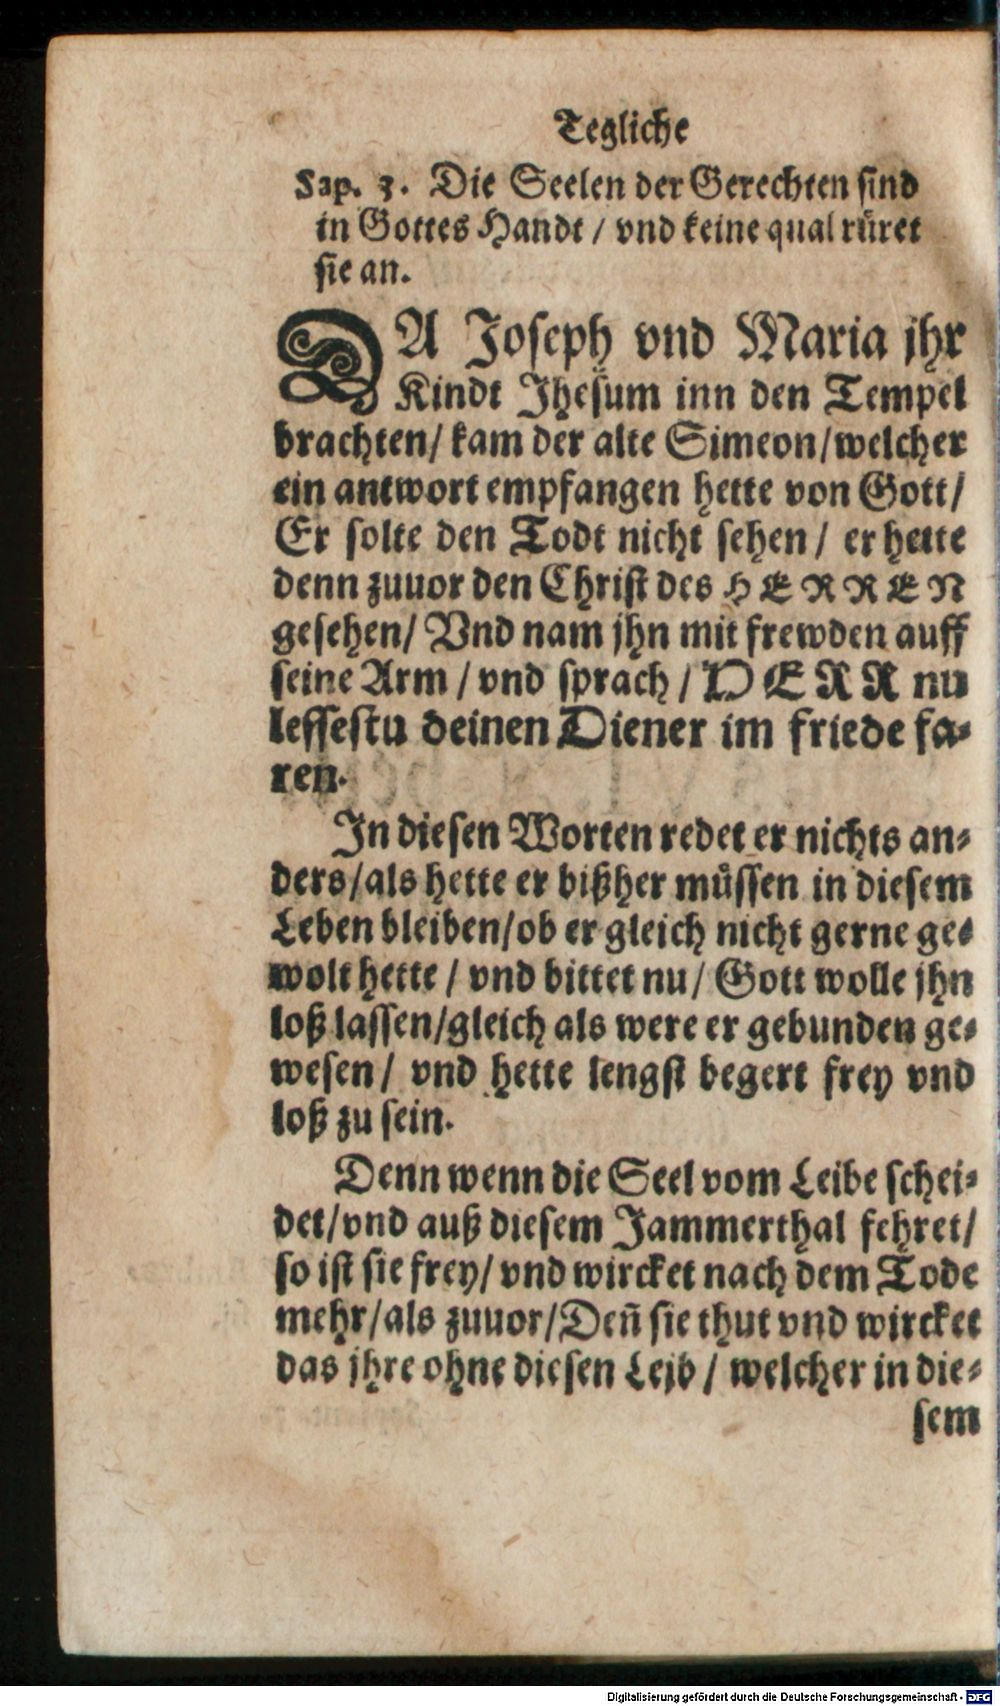 Tegliche
Sap. 3. Die Seelen der Gerechten sind
in Gottes Handt / vnd keine qual rüret
sie an.
DA Joseph vnd Maria jhr
Kindt Jhesum inn den Tempel
brachten/ kam der alte Simeon/welcher
ein antwort empfangen hette von Gott/
Er solte den Todt nicht sehen / er hette
denn zuuor den Christ des HERREN
gesehen/ Vnd nam jhn mit frewden auff
seine Arm / vnd sprach / HERR nu
lessestu deinen Diener im friede fa-
ren.
In diesen Worten redet er nichts an-
ders/als hette er bißher müssen in diesem
Leben bleiben/ob er gleich nicht gerne ge-
wolt hette / vnd bittet nu/ Gott wolle jhn
loß lassen/gleich als were er gebunden ge-
wesen / vnd hette lengst begert frey vnd
loß zu sein.
Denn wenn die Seel vom Leibe schei-
det/vnd auß diesem Jammerthal fehret/
so ist sie frey/ vnd wircket nach dem Tode
mehr/als zuuor/Deñ sie thut vnd wircket
das jhre ohne diesen Lejb / welcher in die-
sem
Digitalisierung gefördert durch die Deutsche Forschungsgemeinschaft - DFG